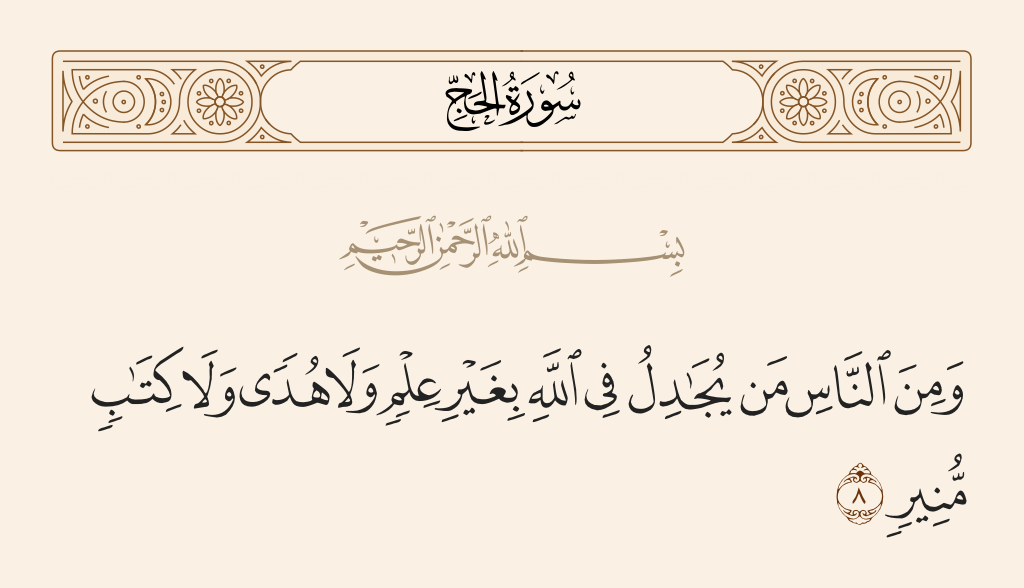 سُورَةُ الْحَجِّ
بِسْمِ ٱللَّهِ ٱلرَّحْمَٰنِ ٱلرَّحِيمِ
وَمِنَ ٱلنَّاسِ مَن يُجَـٰدِلُ فِى ٱللَّهِ بِغَيْرِ عِلْمٍ وَلَا هُدًى وَلَا كِتَـٰبٍ
مُّنِيرٍ ٨